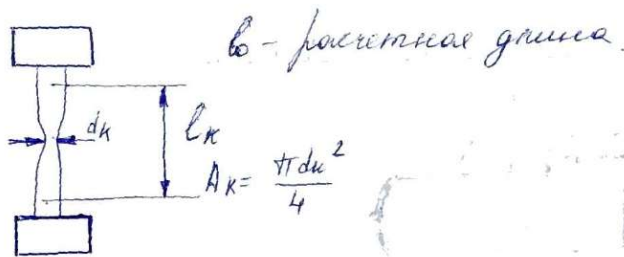 l₀ - расчетная длина
dк
lк
Aк = πdк²/4